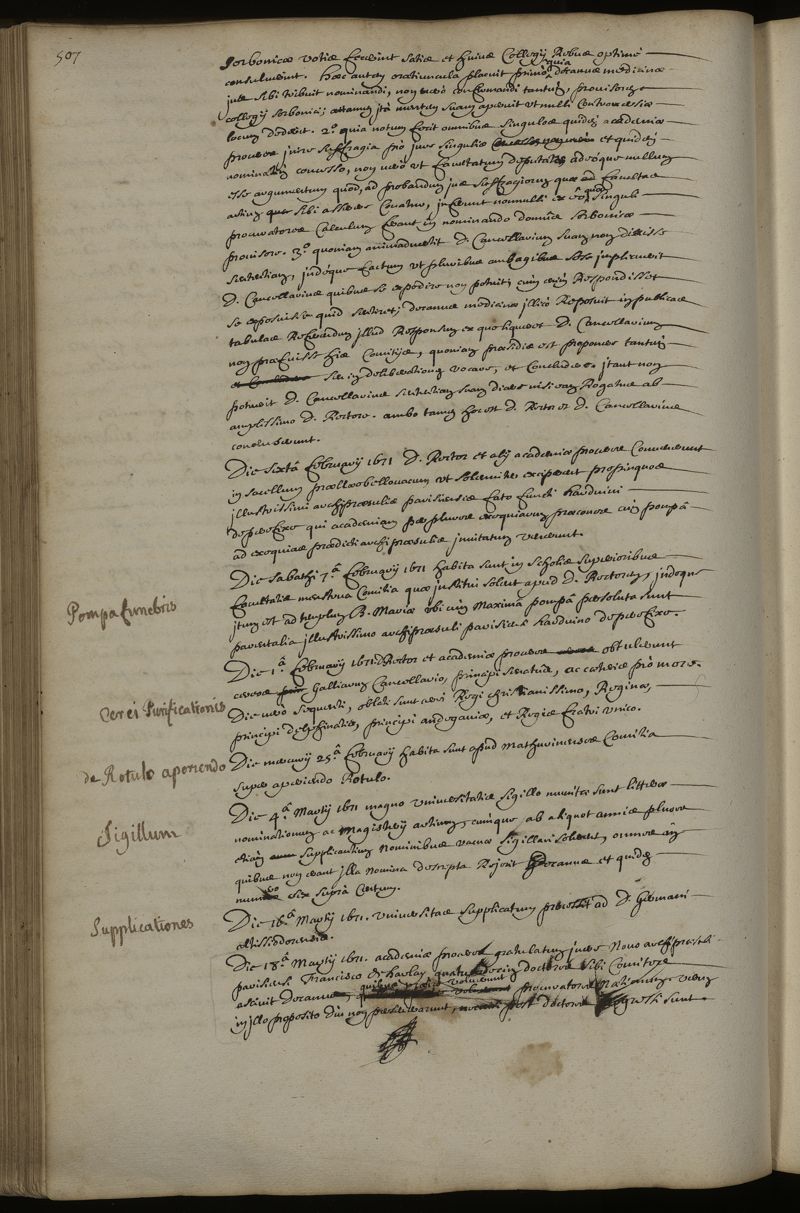 507
Sorbonicæ votiæ fecerint satiæ et huius Collegij Rebus optimè
consuluerint. hæc autem oratiuncula placuit primò quia decanus medicinæ
jus sibi tribuit nominandi, non verò confirmandi tantùm, provisores
collegij sorbonici; attamen ità mentem suam aperuit ut nulli controversiæ
locum dederit. 2º quia notum fecit omnibus singulos quidem academiæ
proceres inire suffragia pro jure singulis et quidem
nominatim concesso, non verò ut facultatum deputatos adeóque nullum
esse argumentum quod, ad probandum jus suffragiorum quæ ad facultas
artium quæ sibi asserere conatur, inferunt nonnulli ex eo, quod singuli
procuratores calculum ferant in nominando domus sorbonicæ
provisore. 3º quoniam animadvertit D. Cancellarium suam non dixisse
sententiam, indéque factum ut pluribus ambagibus sese implicuerit
D. Cancellarius quibus se expedire non potuit; cùm enim respondisset
se exposuisse quid sentiret; decanus medicinæ illico reposuit in publicas
tabulas referendum illud responsum ex quo liqueret D. Cancellarium
non præfuisse his Comitijs, quoniam præsidis est proponere tantùm
et concludere seu in deliberationem vocare, et concludere. itaut non
potuerit D. Cancellarius sententiam suam dicere nisi eam rogatus ab
amplissimo D. Rectore. ambo tamen hoc est D. Rector et D. Cancellarius
concluserunt.
Die sextâ februarij 1671 D. Rector et alij academiæ proceres convenerunt
in sacellum prællæobellovacum ut solemniter exciperent propinquos
illustrissimi archipræsulis parisiensis fato functi harduini
de perefixe qui academiam per plures exequiarum præcones cùm pompâ
ad exequias prædicti archipræsulis invitatum venerunt.
Die Sabathi 7ª februarij 1671 habita sunt in scholis superioribus
facultatis menstrua Comitia quæ institui solent apud D. Rectorem, indéque
itum est ad templum B. Mariæ ubi cùm maximâ pompâ persoluta sunt
parentalia illustrissimo archipræsuli parisiensi harduino de perefixe.
Pompa funebris
Die 1ª februarij 1671 Rector et academiæ proceres obtulerunt
cereos Galliarum Cancellario, principi senatus, ac cæteris pro more.
Die verò sequenti, oblati sunt cerei Regi christianissimo, Reginæ,
principi delphinatis, principi andeganæ, et Regis fratri unico.
Cerei Purificationis
Die mercurij 25ª februarij habita sunt apud mathurinenses Comitia
super aperiendo Rotulo.
de Rotulo aperiendo
Die 4ª Martij 1671 magno universitatis sigillo munitæ sunt litteræ
nominationum ac magisterij artium, cùmque ab aliquot annis plures
etiam supplicantium nominibus vacuæ sigillari solerent, omnes in
quibus non erant illa nomina descripta rejecit Decanus et quidem
numero sex suprà centum.
Sigillum
Die 16ª Martij 1671. universitas supplicatum processit ad D. Germani
altissiodorensis.
Supplicationes
Die 18ª Martij 1671. academiæ proceres gratulatum ivere novo archipræsuli
parisiensi Francisco de harlay quatuordecim doctores sibi comitores
adivit decanus, quibus verò venerunt procuratores nationum, verum
in illo proposito diu non perseverarunt, post doctores ingressi sunt.